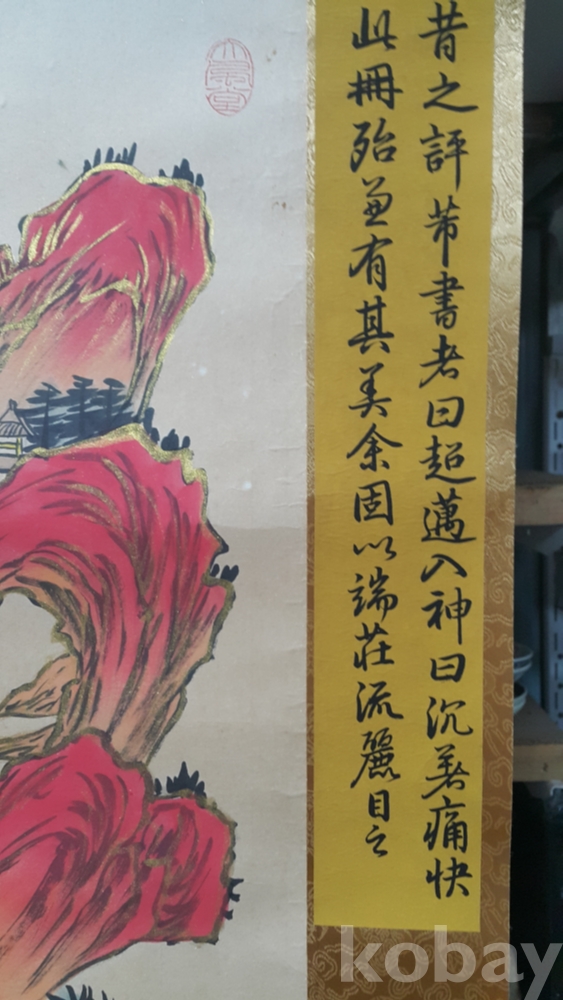 昔之評芾書者曰超邁入神曰沉著痛快
此冊殆兼有其美余固以端莊流麗目之
kobay